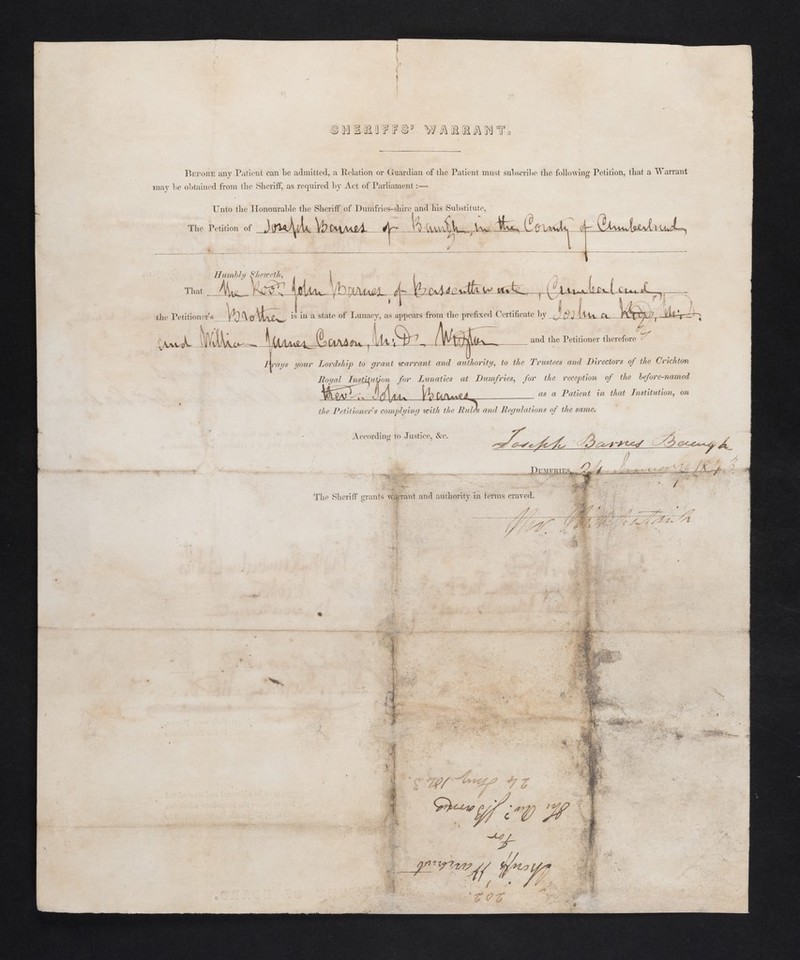 SHERIFFS' WARRANT.
BEFORE any Patient can be admitted, a Relation or Guardian of the Patient must subscribe the following Petition, that a Warrant
may be obtained from the Sheriff, as required by Act of Parliament :—
Unto the Honourable the Sheriff of Dumfries-shire and his Substitute,
The Petition of Joseph Barnes of Baurgh, in the County of Cumberland,
Humbly Sheweth,
That The Revd. John Barnes, of Bassenthwaite, Cumberland,
the Petitioner's Brother is in a state of Lunacy, as appears from the prefixed Certificate by Joshua
and William James Carson, M.D. Wigton and the Petitioner therefore
Prays your Lordship to grant warrant and authority, to the Trustees and Directors of the Crichton
Royal Institution for Lunatics at Dumfries, for the reception of the before-named
Revd. John Barnes, as a Patient in that Institution, on
the Petitioner's complying with the Rules and Regulations of the same.
According to Justice, &c.
Joseph Barnes Baurgh
DUMFRIES, 24 January 1843
The Sheriff grants warrant and authority in terms craved.
Kirkpatrick
202.
Sheriff's Warrant
for
The Revd. J. Barnes
24 Jany 1843.